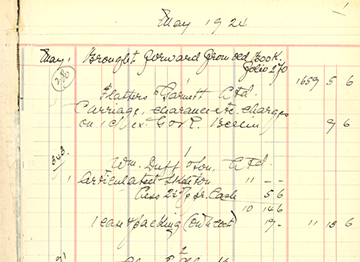 May 1924
1
May 1 Brought forward from old Book
folio 270 1659 5 6
286
Flatters & Garnett Ltd
Carriage, clearance etc. charges
on 1 c/s ex G & T. Berlin 9 6
1
Wm. Duff & Son, Ltd
1 Articulated Skeleton 11 - -
Less 2½% for Cash 5 6
10 14 6
1 case & packing (at cost) 19 - 11 13 6
2